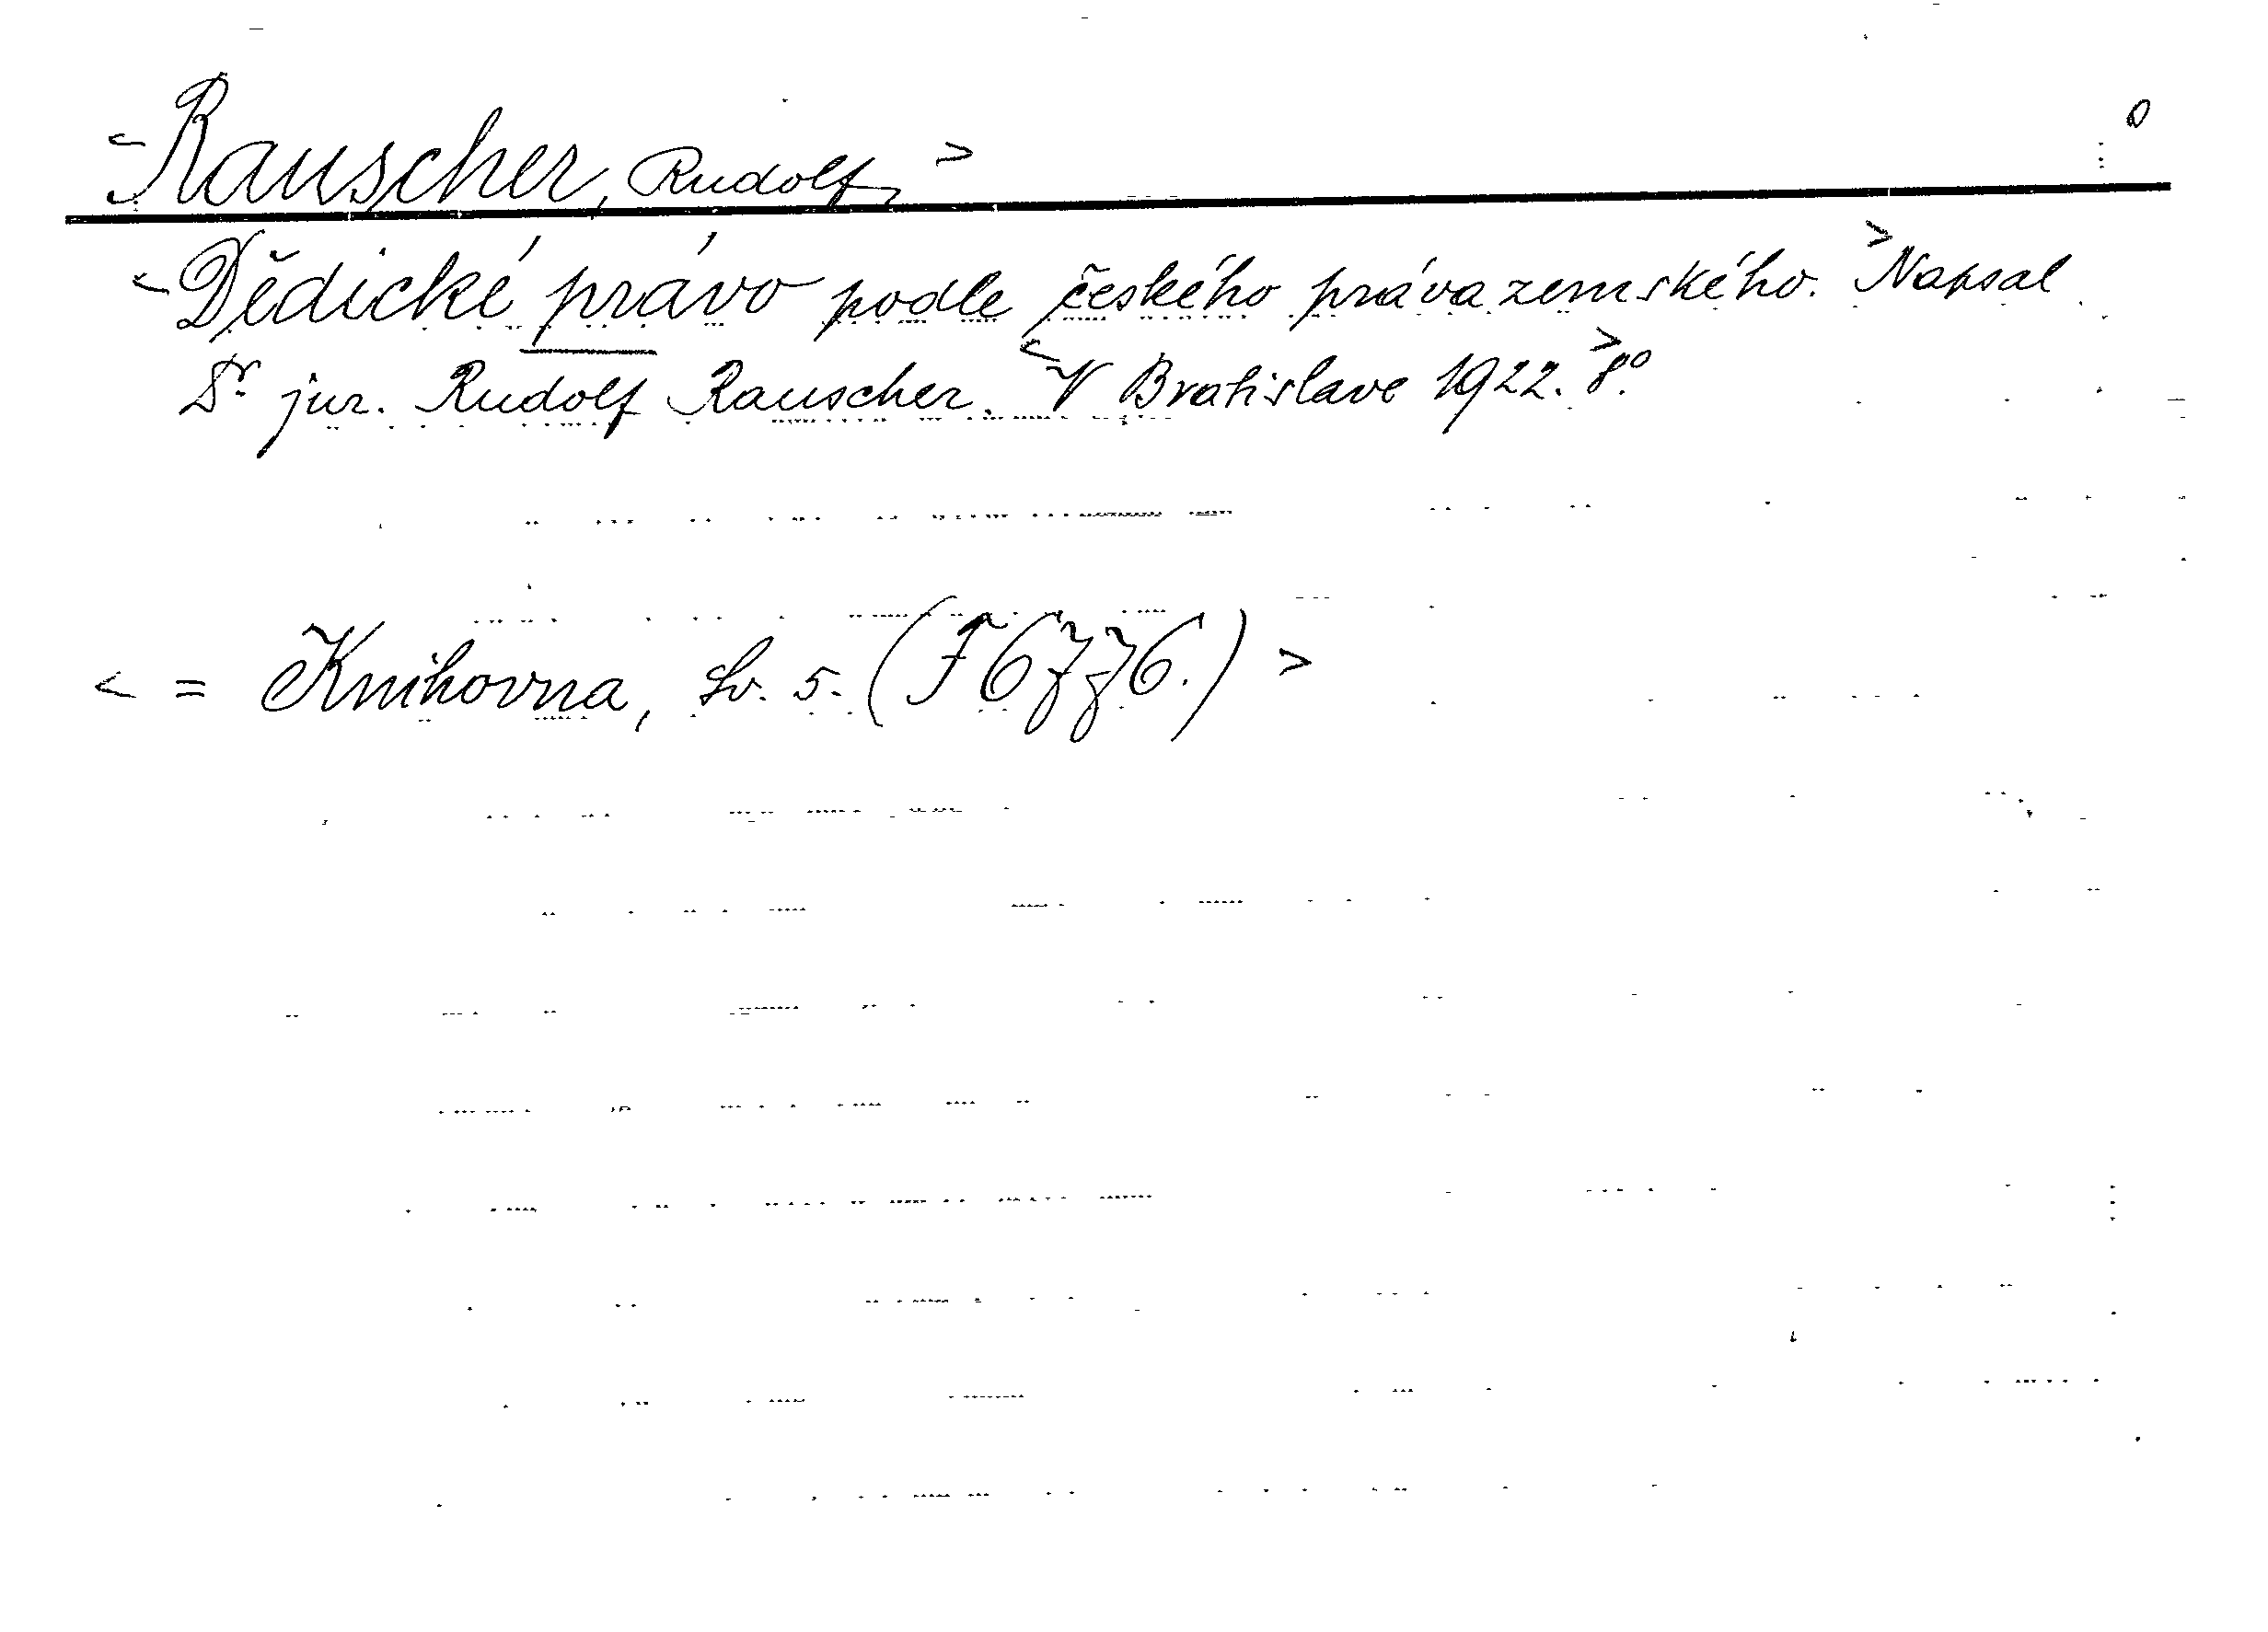 <Rauscher, Rudolf,> 0
<Dědické právo podle českého práva zemského.> Napsal
Dr. jur. Rudolf Rauscher. <V Bratislave 1922.> 8°.
< = Knihovna, Sv. 5. (F 6776.) >